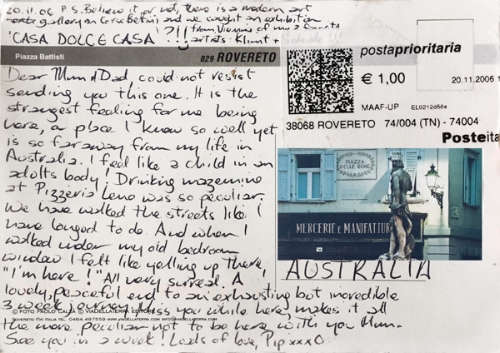 20.11.06 P.S. Believe it or not, there is a modern art
gallery on Corso Bettini and we caught an exhibition
'CASA DOLCE CASA' ?!! from Vienna of
artists Klimt +
Piazza Battisti
029 ROVERETO
Dear Mum & Dad, could not resist
sending you this one. It is the
strangest feeling for me being
here, a place I know so well yet
is so far away from my life in
Australia. I feel like a child in an
adults body! Drinking
at Pizzeria Leno was so peculiar.
We have walked the streets like I
have longed to do. And when I
walked under my old bedroom
window I felt like yelling up there,
"I'm here!" All very surreal. A
lovely, peaceful end to an exhausting but incredible
3 week journey. I miss you while here, makes it all
the more peculiar not to be here with you Mum.
See you in a week! Loads of love, Pip xxxo
© FOTO PAOLO
ROVERETO
postaprioritaria
€ 1,00
20.11.2006 1
MAAF-UP
38068 ROVERETO 74/004 (TN) - 74004
Posteita
PIAZZA
DELLE OCHE
MERCERIE e MANIFATTUR
AUSTRALIA